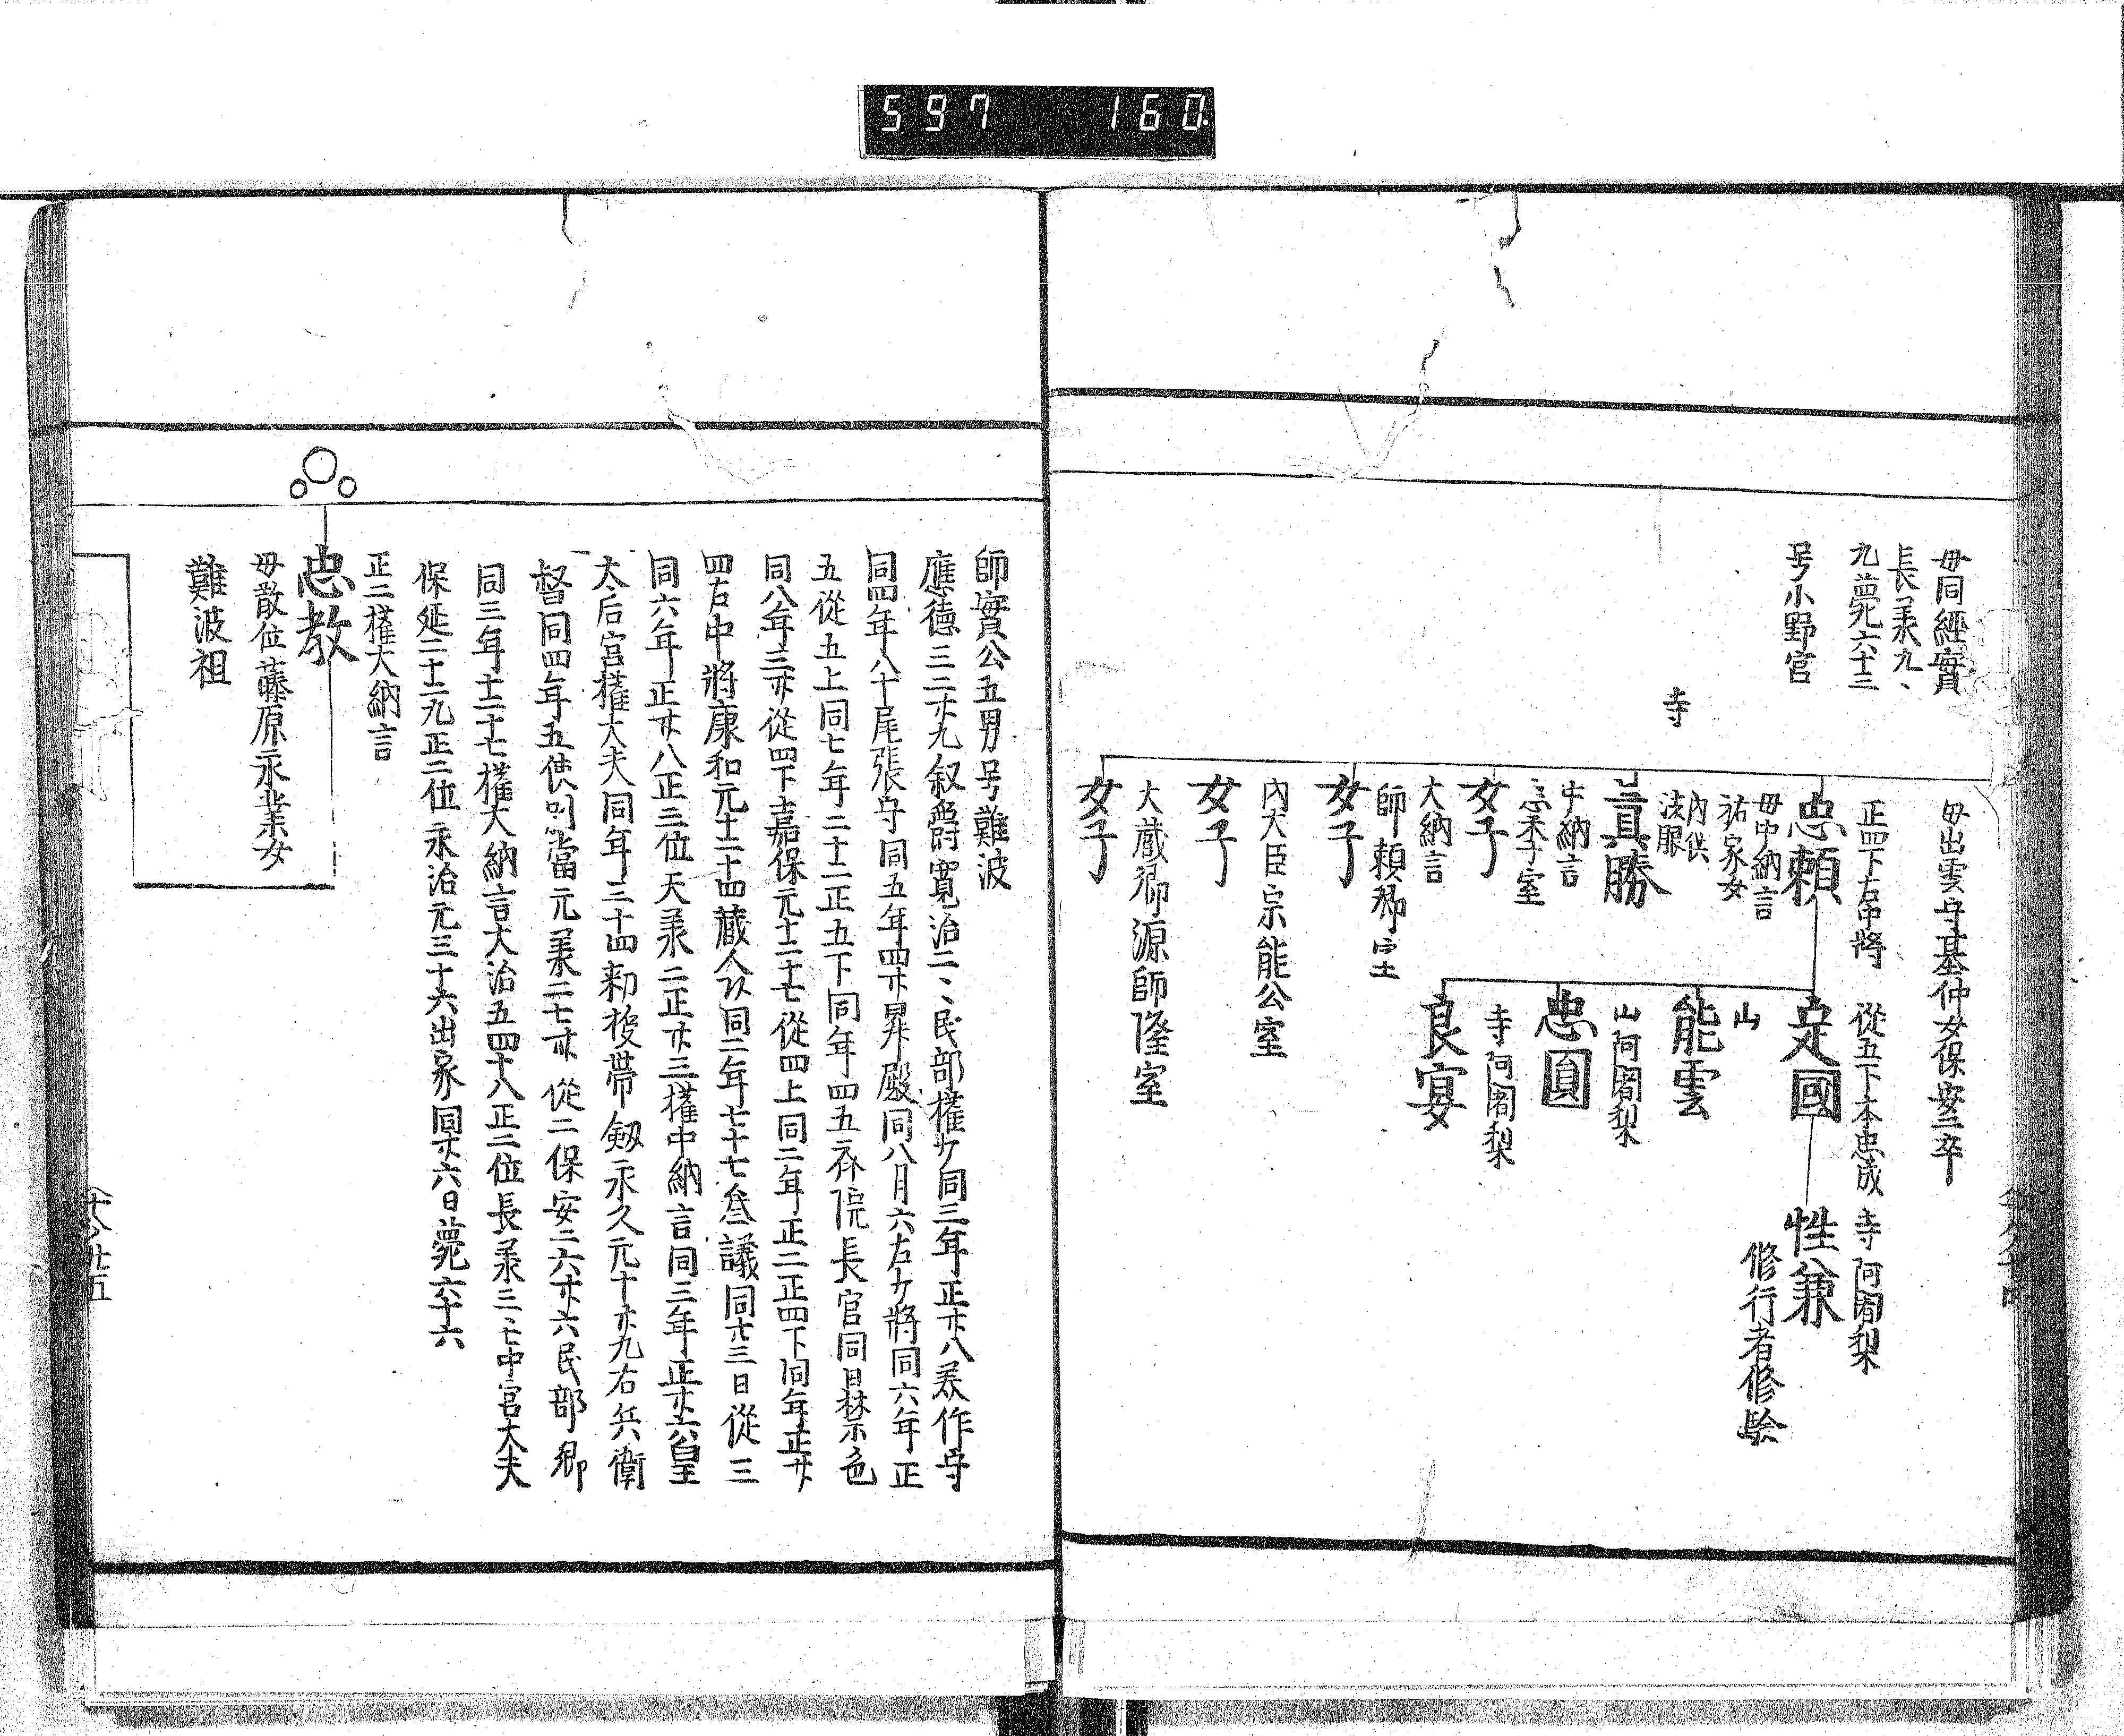 597 160
母同經實
長承九、
九薨六十三
号小野宮
母出雲守基仲女保安三卒
正四下右中將
忠頼
母中納言
祐家女
從五下本忠成
定國
寺阿闍梨
性兼
修行者修驗
山
能雲
山阿闍梨
忠圓
寺阿闍梨
良宴
寺
内供
法服
眞勝
中納言
忠宗子室
女子
大納言
師頼卿室
女子
内大臣宗能公室
女子
大藏卿源師隆室
女子
師實公五男号難波
應德三二廿九叙爵寛治二、民部權少同三年正廿八美作守
同四年八十尾張守同五年四廿昇殿同八月六右少將同六年正
五從五上同七年二十二正五下同年四五斎院長官同日禁色
同八年三廿從四下嘉保元十二十七從四上同二年正二正四下同年正廿
四右中將康和元十二十四藏人頭同二年七十七叅議同廿三日從三
同六年正廿八正三位天承二正廿三權中納言同三年正廿六皇
太后宮權大夫同年三十四勅授帶劔永久元十廿九右兵衛
督同四年五使別當元承二七廿從二保安二六廿六民部卿
同三年十二十七權大納言大治五四十八正二位長承三、七中宮大夫
保延二十二九正二位永治元三十六出家同廿六日薨六十六
正二權大納言
忠教
母散位藤原永業女
難波祖
十八廿五